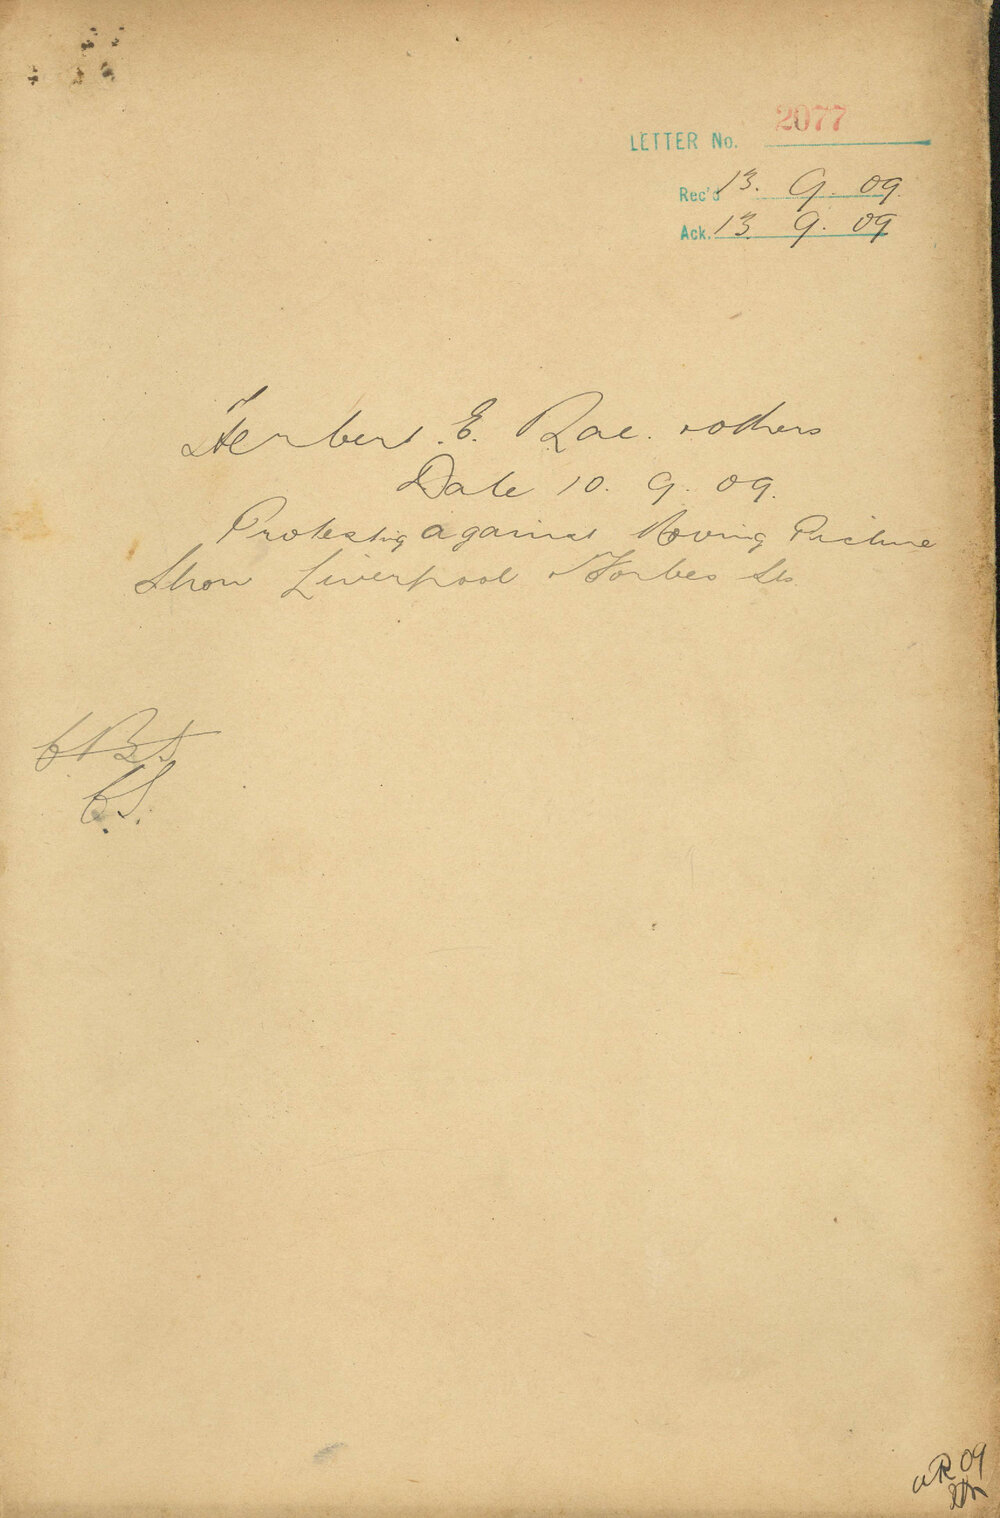 LETTER No. 2077
Rec'd 13. 9. 09.
Ack. 13. 9. 09
Herbert. E. Rae. & others
Date 10. 9. 09.
Protesting against Moving Picture
Show Liverpool & Forbes Sts.
C.S.
09